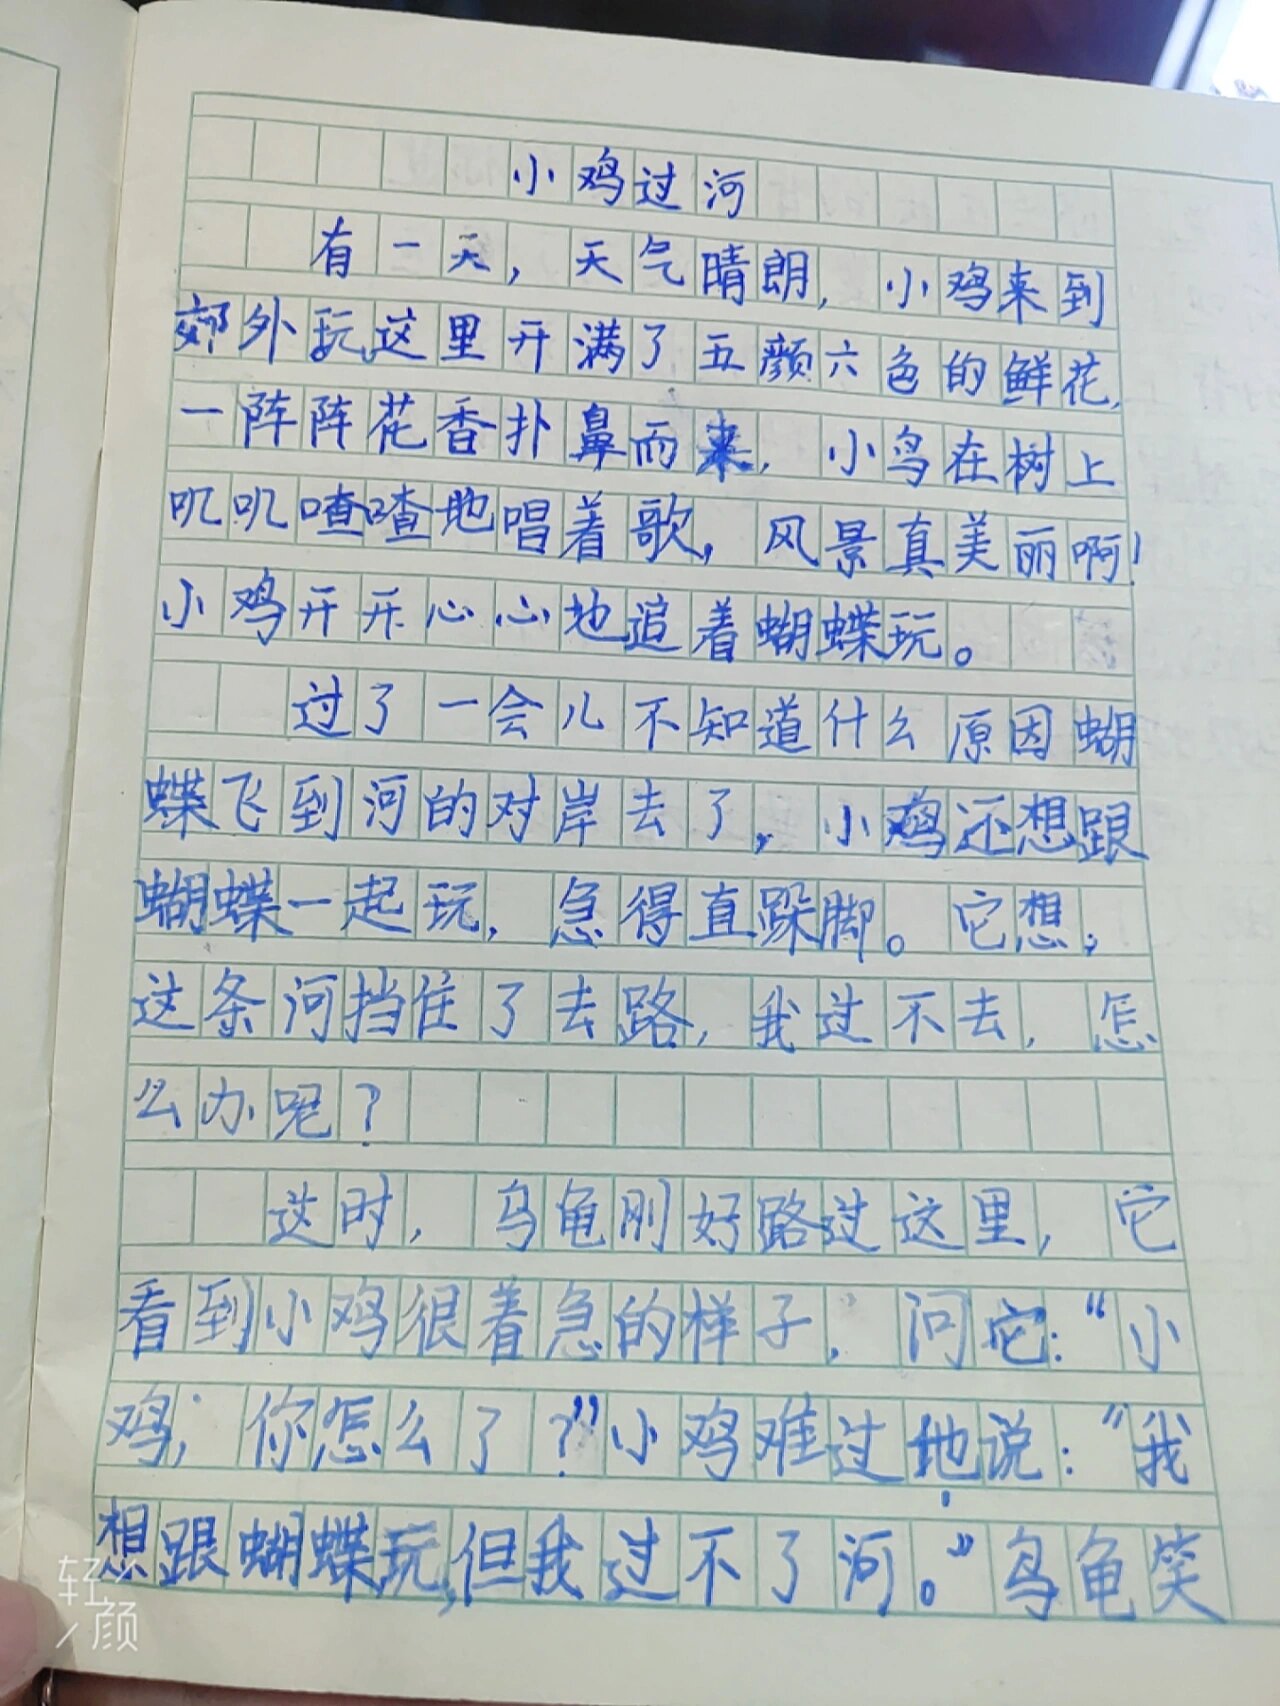 小鸡过河
有一天，天气晴朗，小鸡来到
郊外玩，这里开满了五颜六色的鲜花，
一阵阵花香扑鼻而来，小鸟在树上
叽叽喳喳地唱着歌，风景真美丽啊！
小鸡开开心心地追着蝴蝶玩。
过了一会儿不知道什么原因蝴
蝶飞到河的对岸去了，小鸡还想跟
蝴蝶一起玩，急得直跺脚。它想，
这条河挡住了去路，我过不去，怎
么办呢？
这时，乌龟刚好路过这里，它
看到小鸡很着急的样子，问它：“小
鸡，你怎么了？”小鸡难过地说：“我
想跟蝴蝶玩，但我过不了河。”乌龟笑
轻颜